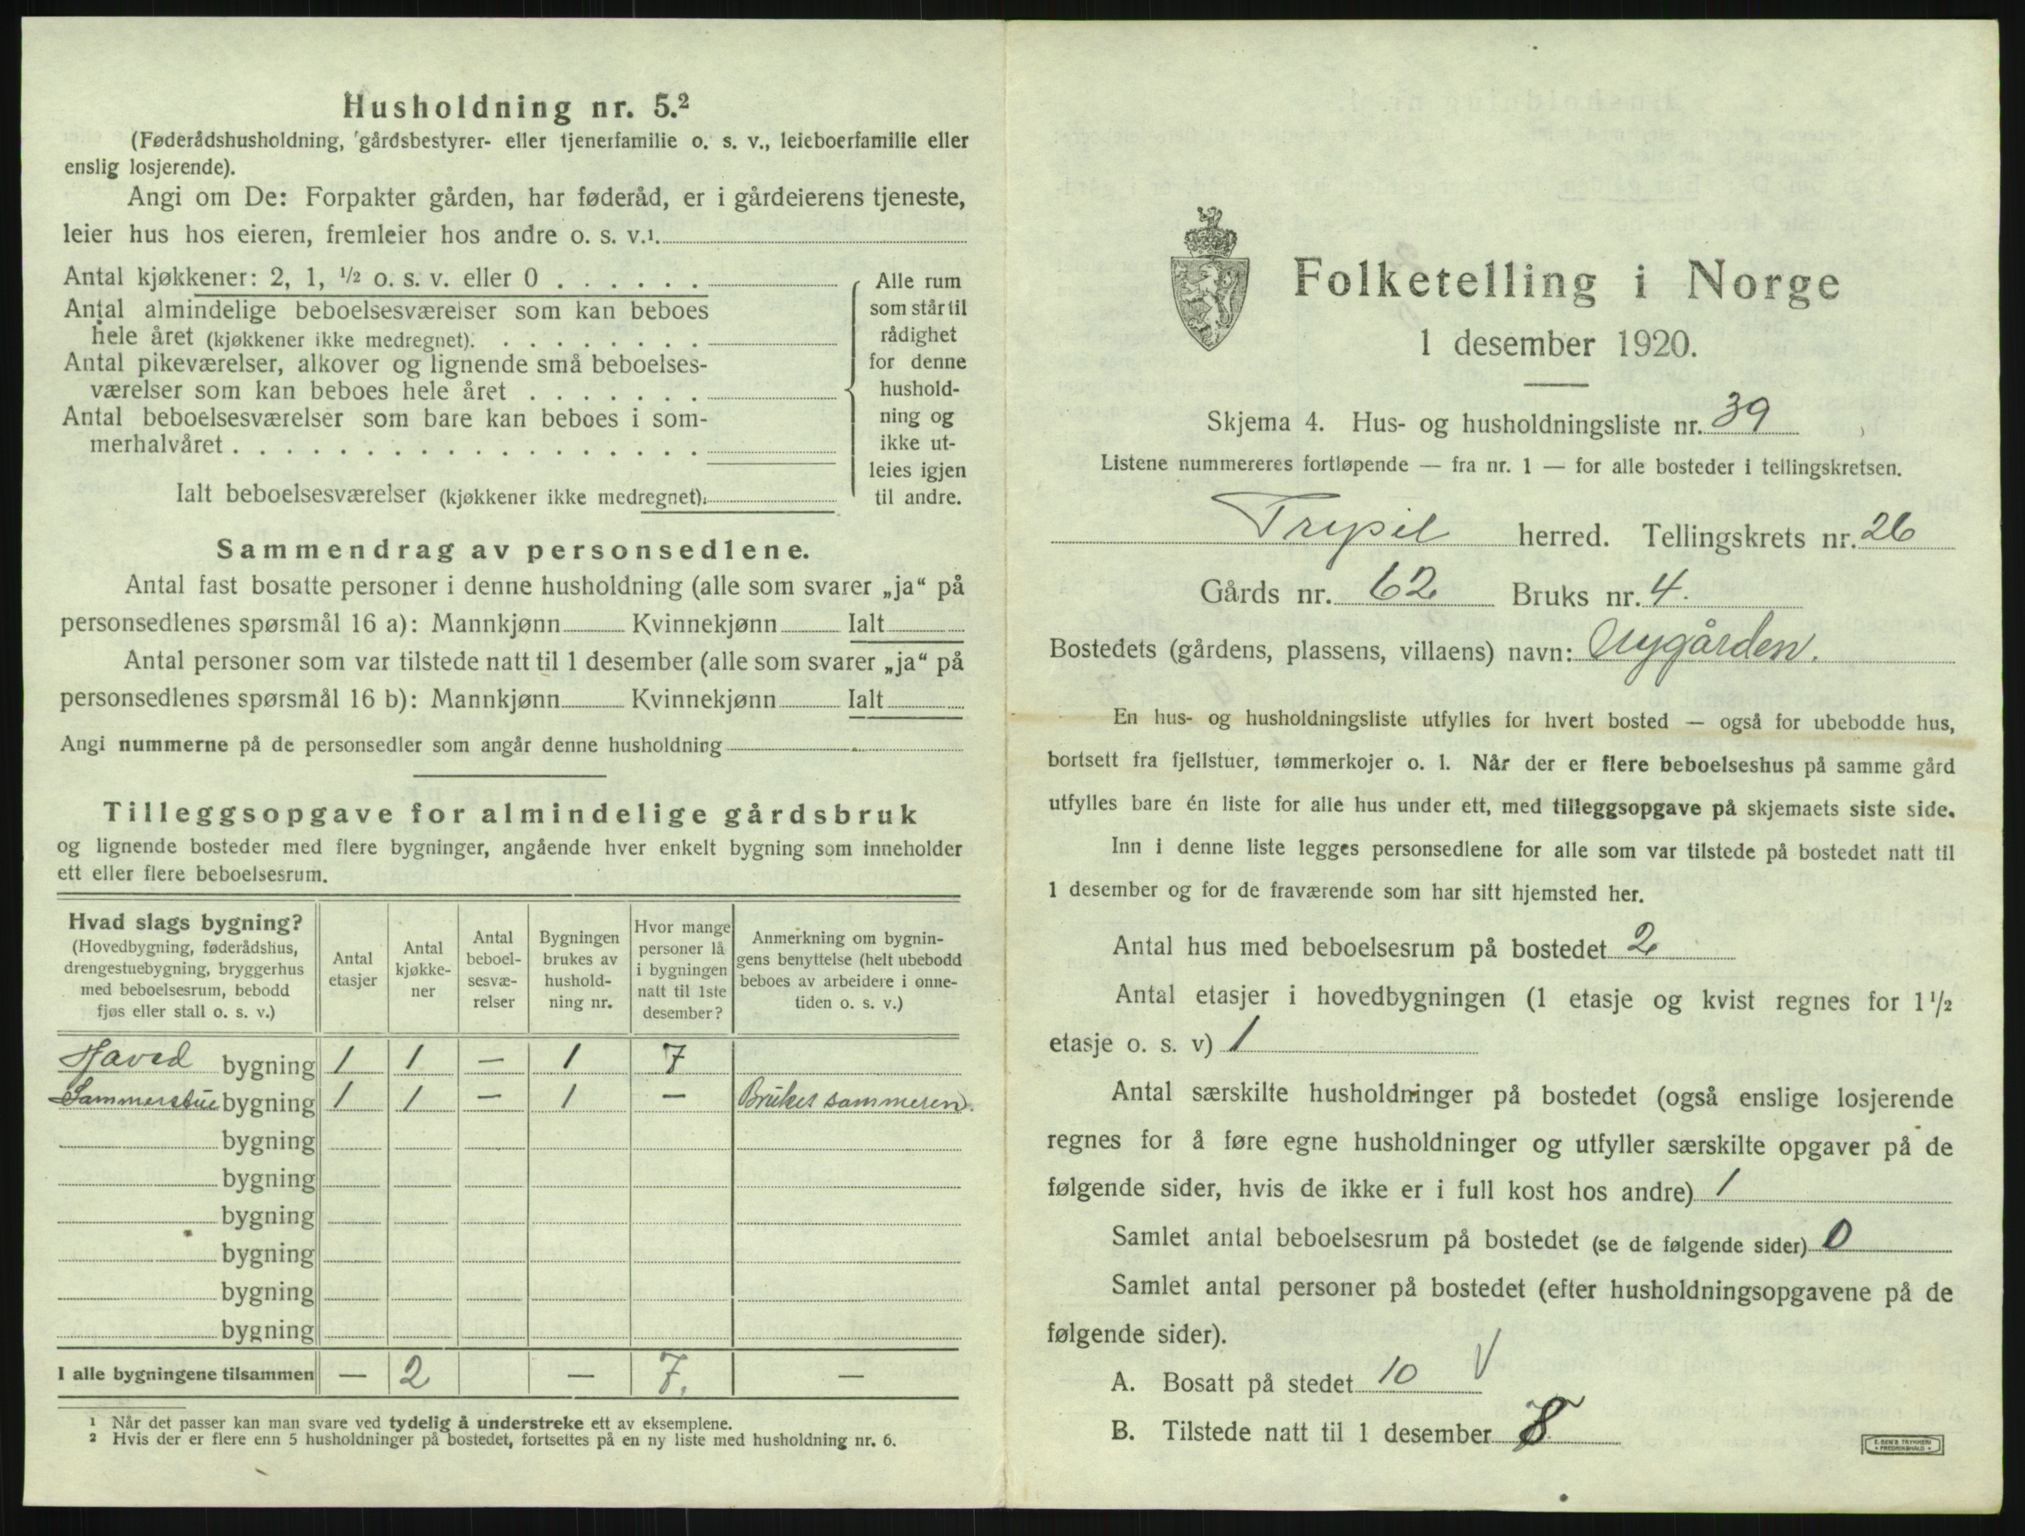 Husholdning nr. 5.²
(Føderådshusholdning, gårdsbestyrer- eller tjenerfamilie o. s. v., leieboerfamilie eller
enslig losjerende).
Angi om De: Forpakter gården, har føderåd, er i gårdeierens tjeneste,
leier hus hos eieren, fremleier hos andre o. s. v.¹
Antal kjøkkener: 2, 1, ½ o. s. v. eller 0 . . . . . .
Antal almindelige beboelsesværelser som kan beboes
hele året (kjøkkener ikke medregnet). . . . . . . . .
Antal pikeværelser, alkover og lignende små beboelses-
værelser som kan beboes hele året . . . . . . .
Antal beboelsesværelser som bare kan beboes i som-
merhalvåret . . . . . . . . . . . . . . . . . .
Ialt beboelsesværelser (kjøkkener ikke medregnet).
Alle rum
som står til
rådighet
for denne
hushold-
ning og
ikke ut-
leies igjen
til andre.
Sammendrag av personsedlene.
Antal fast bosatte personer i denne husholdning (alle som svarer „ja“ på
personsedlenes spørsmål 16 a): Mannkjønn Kvinnekjønn Ialt
Antal personer som var tilstede natt til 1 desember (alle som svarer „ja“ på
personsedlenes spørsmål 16 b): Mannkjønn Kvinnekjønn Ialt
Angi nummerne på de personsedler som angår denne husholdning
Tilleggsopgave for almindelige gårdsbruk
og lignende bosteder med flere bygninger, angående hver enkelt bygning som inneholder
ett eller flere beboelsesrum.
Hvad slags bygning?
(Hovedbygning, føderådshus,
drengestuebygning, bryggerhus
med beboelsesrum, bebodd
fjøs eller stall o. s. v.)
Antal
etasjer
Antal
kjøkke-
ner
Antal
beboel-
sesvæ-
relser
Bygningen
brukes av
hushold-
ning nr.
Hvor mange
personer lå
i bygningen
natt til 1ste
desember?
Anmerkning om bygnin-
gens benyttelse (helt ubebodd
beboes av arbeidere i onne-
tiden o. s. v.)
Hoved bygning 1 1 — 1 7
Sommerstue bygning 1 1 — 1 — Brukes sommeren.
bygning
bygning
bygning
bygning
bygning
bygning
I alle bygningene tilsammen — 2 — 7. —
¹ Når det passer kan man svare ved tydelig å understreke ett av eksemplene.
² Hvis der er flere enn 5 husholdninger på bostedet, fortsettes på en ny liste med husholdning nr. 6.
Folketelling i Norge
1 desember 1920.
Skjema 4. Hus- og husholdningsliste nr. 39
Listene nummereres fortløpende — fra nr. 1 — for alle bosteder i tellingskretsen.
Trysil herred. Tellingskrets nr. 26
Gårds nr. 62 Bruks nr. 4.
Bostedets (gårdens, plassens, villaens) navn: Nygården.
En hus- og husholdningsliste utfylles for hvert bosted — også for ubebodde hus,
bortsett fra fjellstuer, tømmerkojer o. l. Når der er flere beboelseshus på samme gård
utfylles bare én liste for alle hus under ett, med tilleggsopgave på skjemaets siste side.
Inn i denne liste legges personsedlene for alle som var tilstede på bostedet natt til
1 desember og for de fraværende som har sitt hjemsted her.
Antal hus med beboelsesrum på bostedet 2
Antal etasjer i hovedbygningen (1 etasje og kvist regnes for 1 ½
etasje o. s. v) 1
Antal særskilte husholdninger på bostedet (også enslige losjerende
regnes for å føre egne husholdninger og utfyller særskilte opgaver på de
følgende sider, hvis de ikke er i full kost hos andre) 1
Samlet antal beboelsesrum på bostedet (se de følgende sider) 0
Samlet antal personer på bostedet (efter husholdningsopgavene på de
følgende sider).
A. Bosatt på stedet 10 V
B. Tilstede natt til 1 desember 8